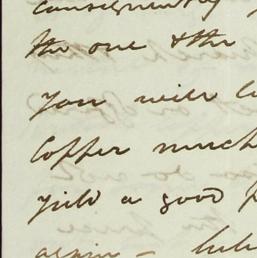 consequently
the one & the
You will
Copper much
yield a good
again –